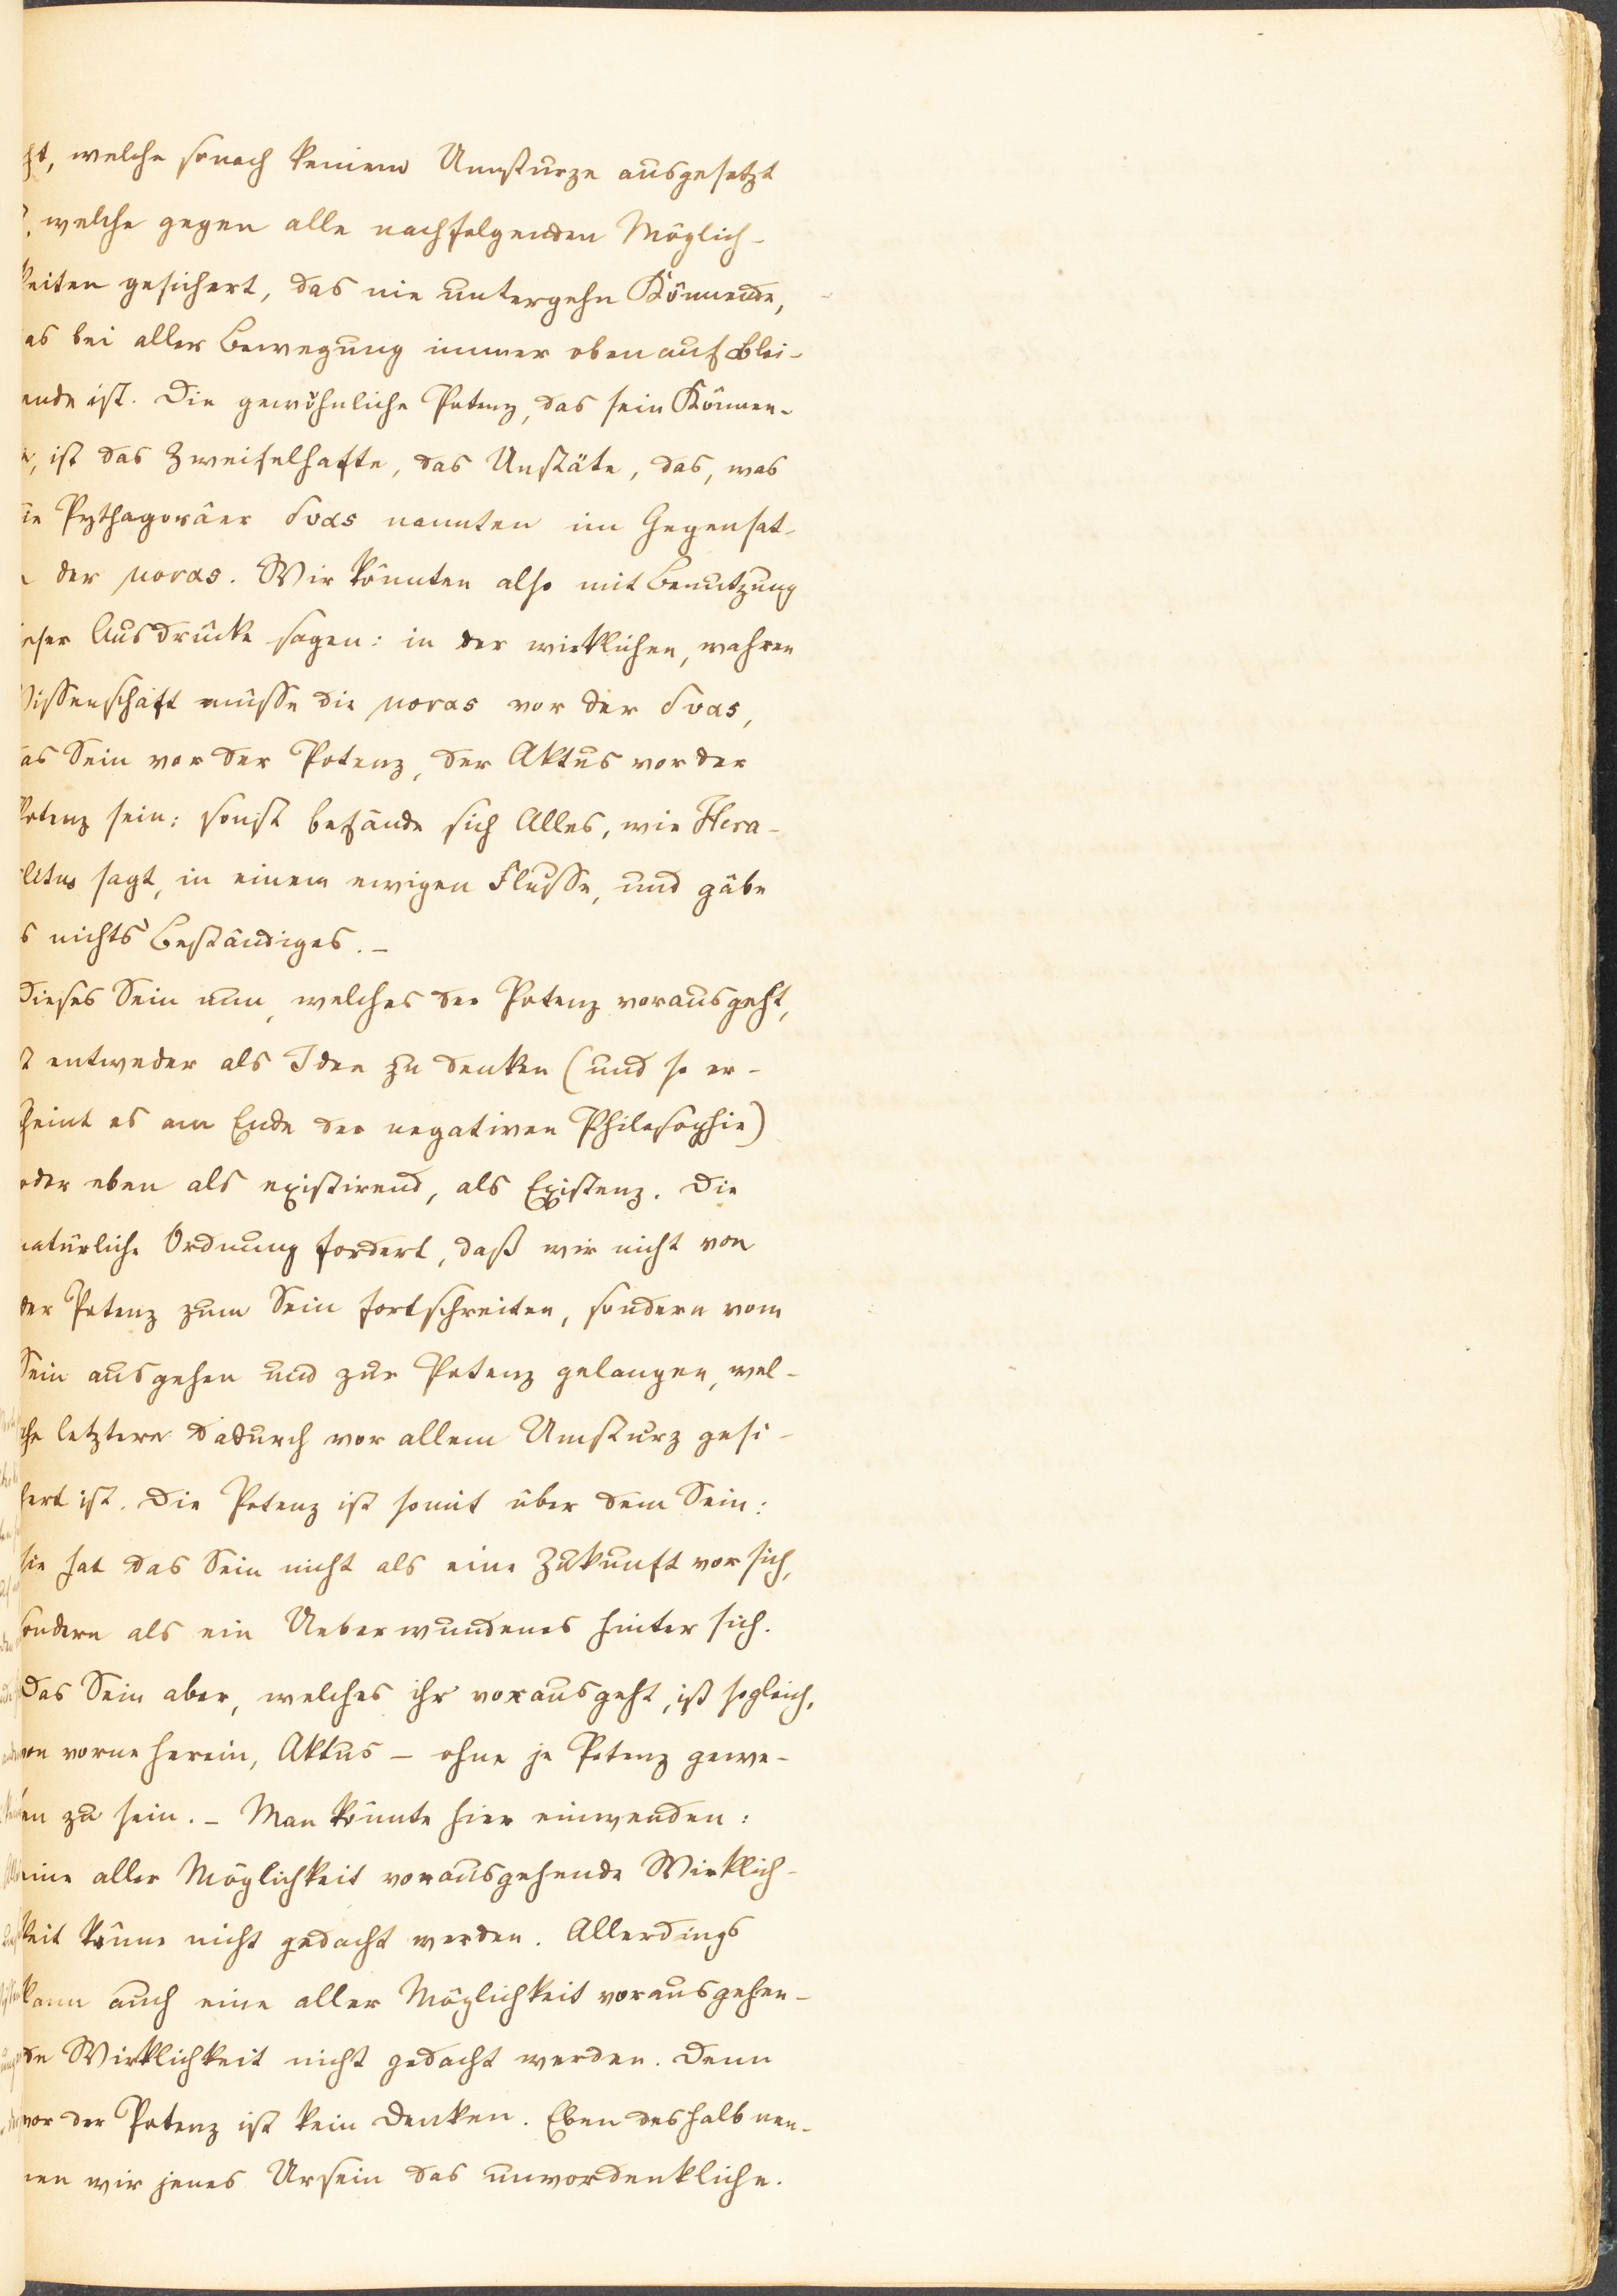 ht, welche sonach keinem Umsturze ausgesetzt
, welche gegen alle nachfolgenden Möglich-
keiten gesichert, das nie untergehn Könnende,
as bei aller Bewegung immer obenauf Blei-
ende ist. Die gewöhnliche Potenz, das sein Können-
e, ist das Zweifelhafte, das Unstäte, das, was
ie Pythagoräer δυας nannten im Gegensat-
der μονας. Wir könnten also mit Benutzung
ieser Ausdrücke sagen: in der wirklichen, wahren
Wissenschaft müsse die μονας vor der δυας,
as Sein vor der Potenz, der Aktus vor der
Potenz sein: sonst befände sich Alles, wie Hera-
clitus sagt, in einem ewigen Flusse, und gäbe
s nichts Beständiges. –
Dieses Sein nun, welches der Potenz vorausgeht,
t entweder als Idee zu denken (und so er-
scheint es am Ende der negativen Philosophie)
oder eben als existirend, als Existenz. Die
natürliche Ordnung fordert, daß wir nicht von
der Potenz zum Sein fortschreiten, sondern vom
Sein ausgehen und zur Potenz gelangen, wel-
che letztere dadurch vor allem Umsturz gesi-
chert ist. Die Potenz ist somit über dem Sein:
sie hat das Sein nicht als eine Zukunft vor sich,
sondern als ein Ueberwundenes hinter sich.
Das Sein aber, welches ihr vorausgeht, ist sogleich,
von vorne herein, Aktus – ohne je Potenz gewe-
sen zu sein. – Man könnte hier einwenden:
eine aller Möglichkeit vorausgehende Wirklich-
keit könne nicht gedacht werden. Allerdings
kann auch eine aller Möglichkeit vorausgehen-
de Wirklichkeit nicht gedacht werden. Denn
vor der Potenz ist kein Denken. Eben deshalb nen-
nen wir jenes Ursein das unvordenkliche.